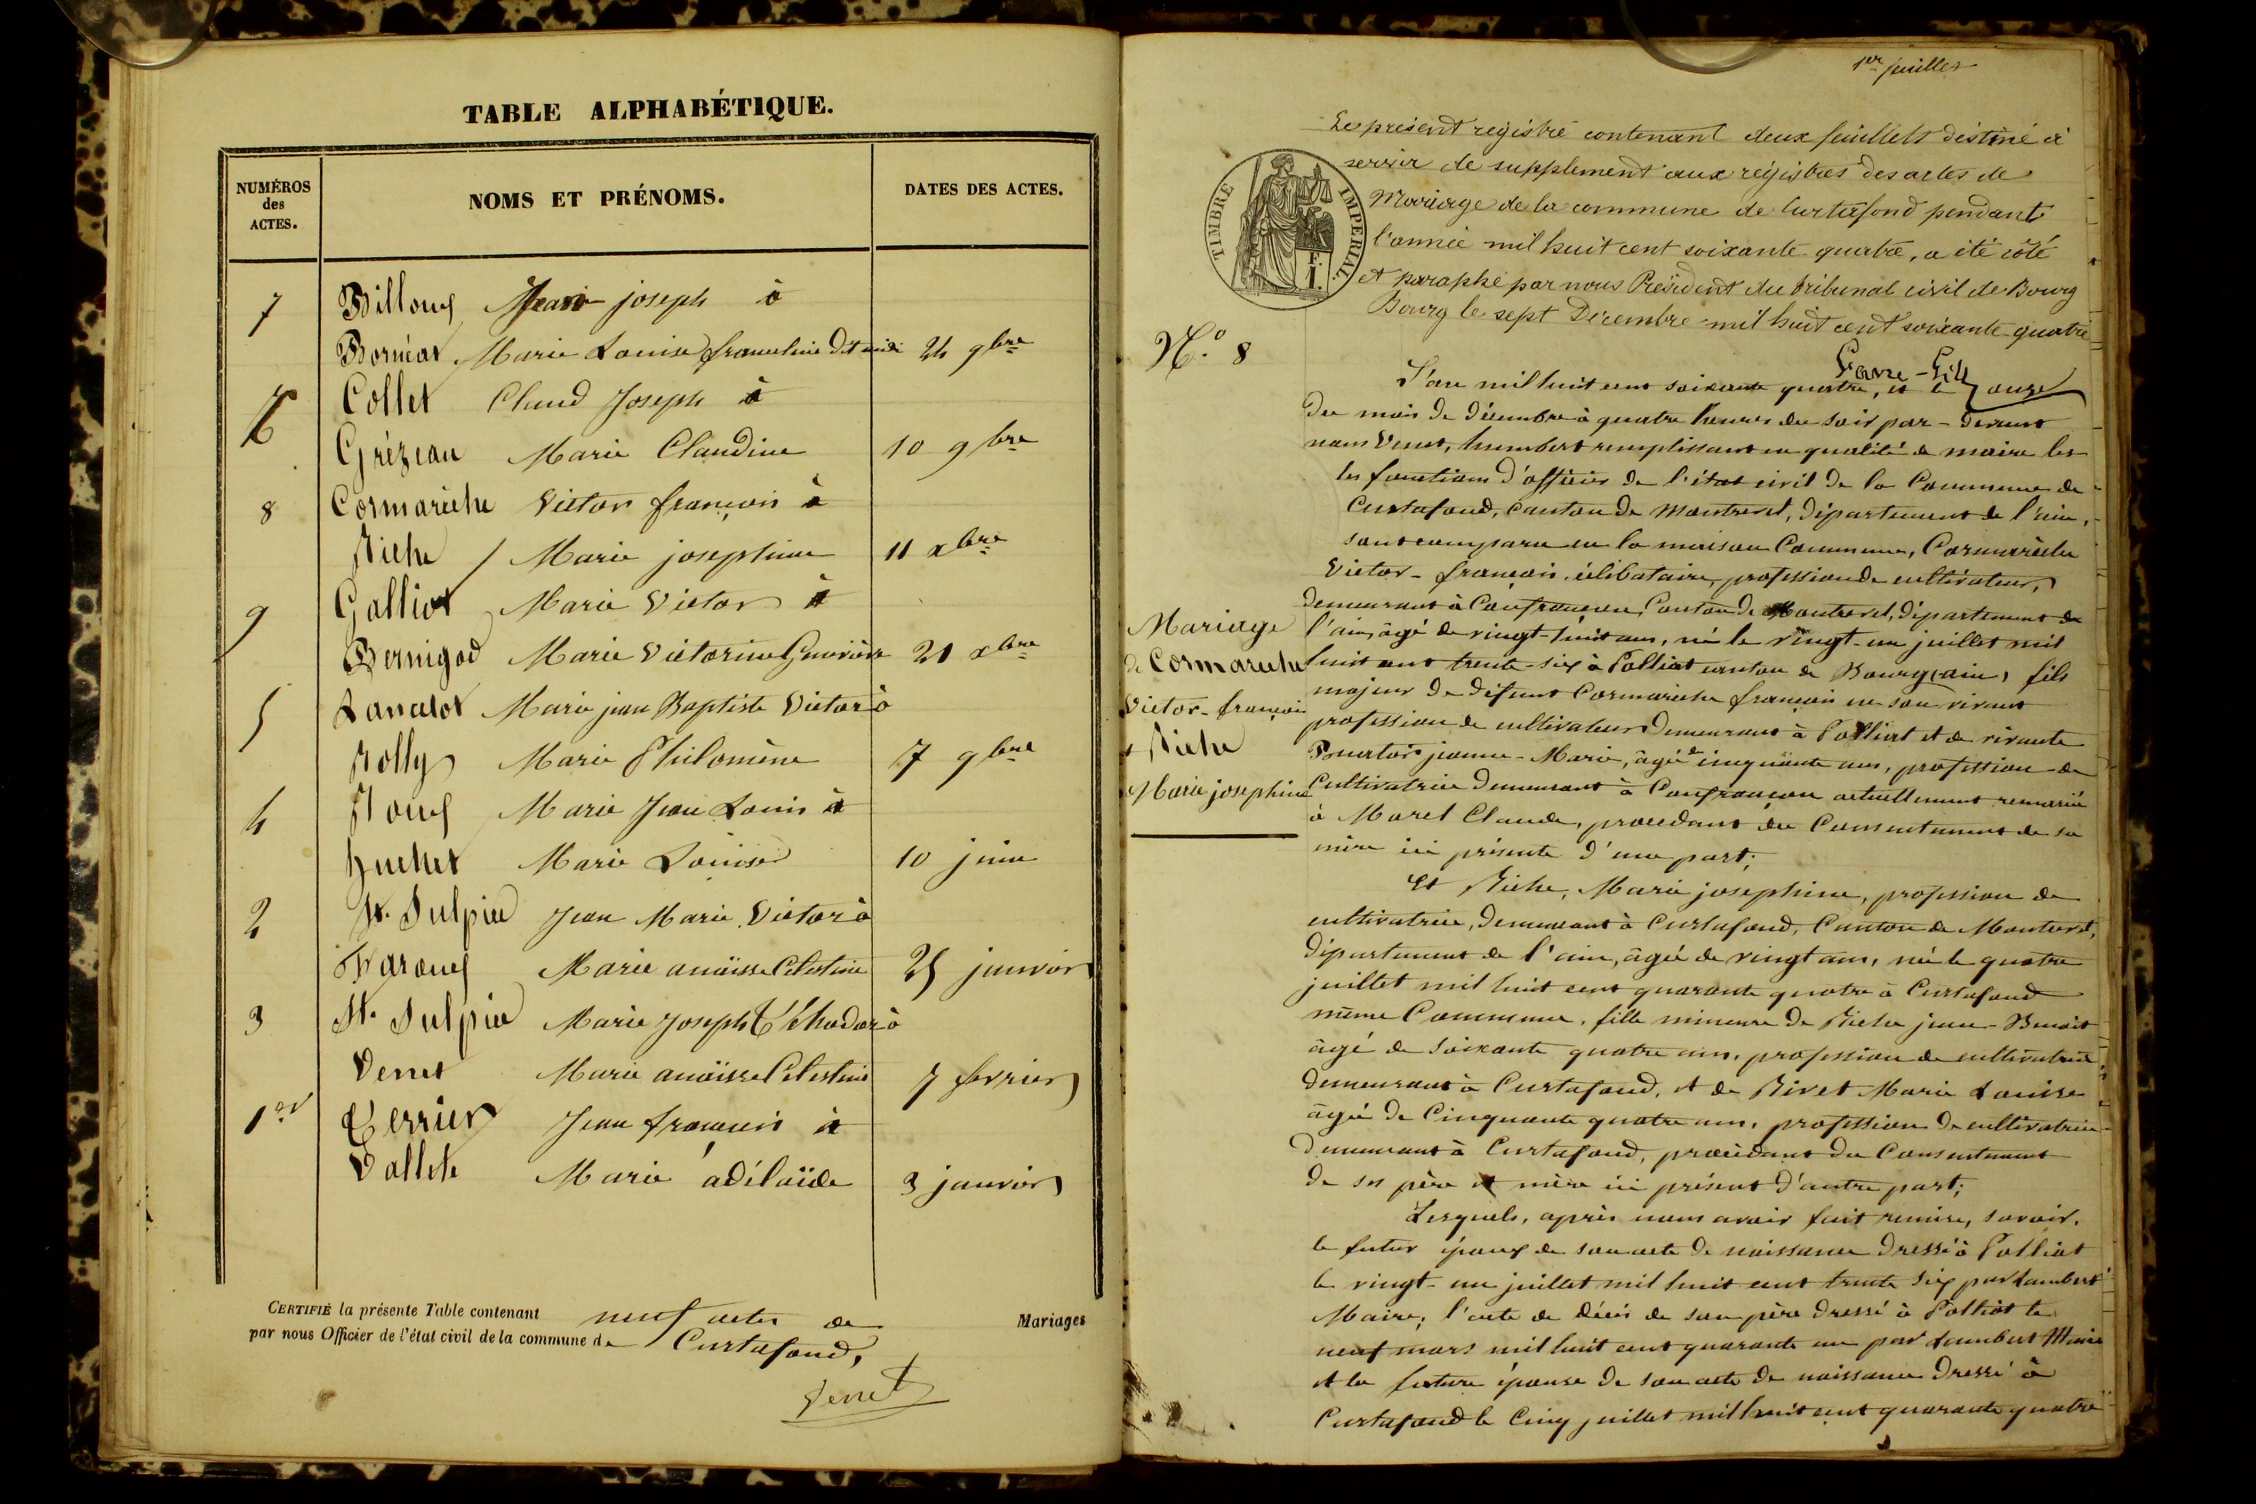 TABLE ALPHABÉTIQUE.
NUMÉROS des ACTES.
NOMS ET PRÉNOMS.
DATES DES ACTES.
7 Billoux Jean joseph à
Bornéat Marie Louise franceline 24 9bre
6 Collet Claud Joseph à
Grézeau Marie Claudine 10 9bre
8 Cormarèche Victor françois à
Riche Marie josephine 11 xbre
9 Galliot Marie Victor à
Bernigod Marie Victorine Genviève 21 xbre
5 Lancelot Marie jean Baptiste Victor à
Rolly Marie Philomène 7 9bre
4 Roux Marie Jean Louis à
Huchet Marie Louise 10 juin
2 St. Sulpice Jean Marie Victor à
Marie anaïsse Celestine 25 janvier
3 St. Sulpice Marie Joseph Théhodor à
Venet Marie anaïsse Celestine 7 fevrier
1er Terrier Jean françois à
Vallet Marie adélaïde 3 janvier
CERTIFIÉ la présente Table contenant neuf actes de Mariages
par nous Officier de l'état civil de la commune de Curtafond,
Venet
1er feuillet
Le présent registre contenant deux feuillets destiné à
servir de supplement aux registres des actes de
Mariage de la commune de Curtafond pendant
l'année mil huit cent soixante quatre, a été côté
et paraphé par nous Président du tribunal civil de Bourg
Bourg le sept Décembre mil huit cent soixante quatre
TIMBRE IMPERIAL.
N.o 8
L'an mil huit cent soixante quatre, et le onze
du mois de décembre à quatre heures du soir par-devant
nous Venet, humbert remplissant en qualité de maire les
les fonctions d'officier de l'état civil de la Commune de
Curtafond, canton de Montrevel, département de l'ain,
sont comparu en la maison Commune, Cormarèche
Victor-françois célibataire, profession de cultivateur,
demeurant à Confrançon, Canton de Montrevel, département de
l'ain, âgé de vingt-huit ans, né le vingt-un juillet mil
huit cent trente-six à Polliat canton de Bourg (ain) fils
majeur de défunt Cormarèche françois en son vivant
profession de cultivateur demeurant à Polliat et de vivante
jeanne-Marie, âgée de cinquante ans, profession de
Cultivatrice demeurant à Confrançon actuellement remariée
à Morel Claude, procédant du Consentement de sa
mère ici présente d'une part;
Mariage
de Cormarèche
Victor-françois
et Riche
Marie josephine
Et Riche, Marie josephine, profession de
cultivatrice, demeurant à Curtafond, Canton de Montrevel,
département de l'ain, âgée de vingt ans, née le quatre
juillet mil huit cent quarante quatre à Curtafond
même Commune, fille mineure de Riche jean-Benoit
âgé de soixante quatre ans, profession de cultivateur
demeurant à Curtafond, et de Rivet Marie Louise
âgée de Cinquante quatre ans, profession de cultivatrice
demeurant à Curtafond, procédant du Consentement
de ses père et mère ici présent d'autre part;
Lesquels, après nous avoir fait remise, savoir,
le futur époux de son acte de naissance dressé à Polliat
le vingt-un juillet mil huit cent trente six par Lambert
Maire; l'acte de décès de son père dressé à Polliat le
neuf mars mil huit cent quarante un par Lambert Maire
et la future épouse de son acte de naissance dressé à
Curtafond le Cinq juillet mil huit cent quarante quatre